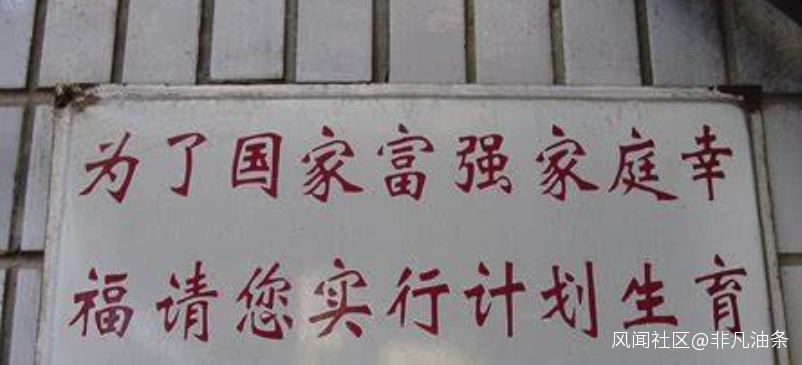 为了国家富强家庭幸
福请您实行计划生育
风闻社区@非凡油条